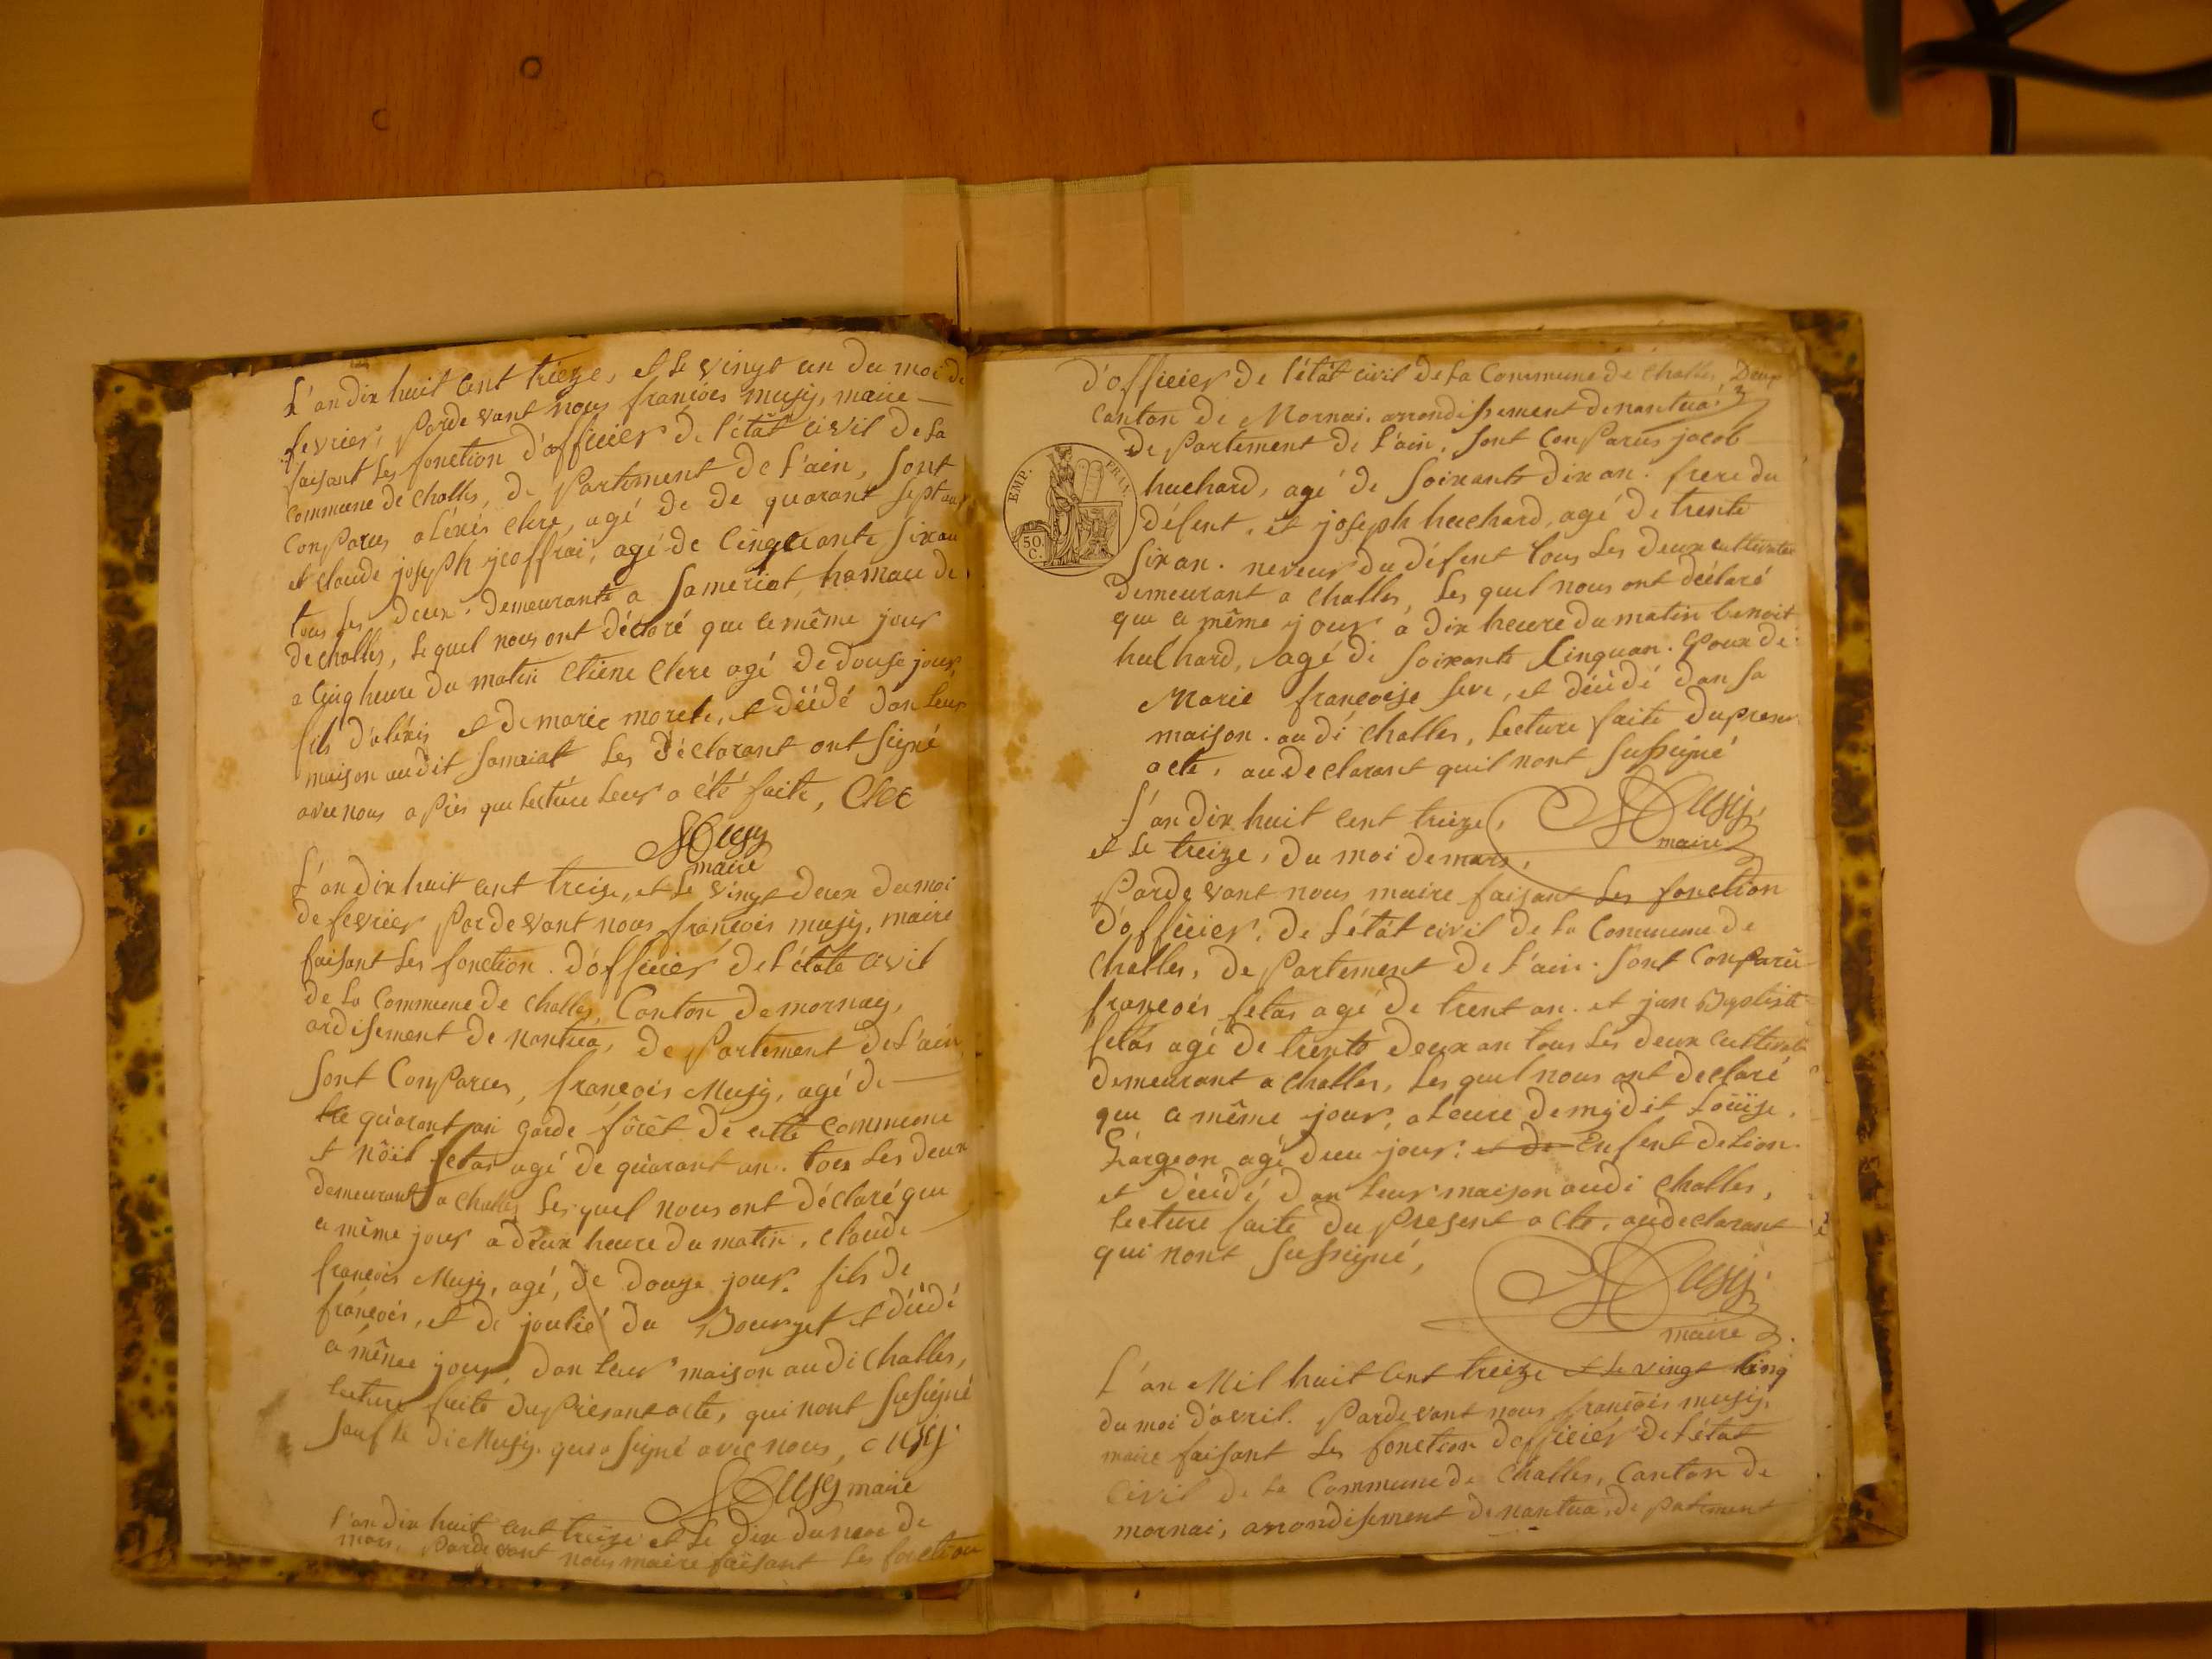 L'an dix huit cent treize, et le vingt un du moi de
fevrier, Parde vant nous francois musy, maire
faisant les fonction d'officier de l'état civil de la
commune de Challes, de Partement de l'ain, sont
ConParus aléxis clere, agé de de quarant sept an
et claude joseph jeoffrai, agé de Cinquante six an
tous les deux demeurante a Sameriat, hamau de
de challes, lequel nous ont déclaré que le même jour
a Cinq heure du matin Etiene Clere agé de douse jour,
fils d'aléxis et de marie morele, et décédé dan leur
maison audit Sameiat les déclarant ont signé
avec nous a Près que lecture leur a été faite, Clec
Musy
maire
L'an dix huit cent treize, et le vingt deux du moi
de fevrier Parde vant nous francois musy, maire
faisant les fonction d'officier de l'état civil
de la Commune de Challes, Canton de mornay,
ardisement de nantua, de Partement de l'ain
sont ConParus, francois Musy, agé de
quarant an garde fôrêt de cette commune
et nöil fetas agé de quarant an. tous les deux
demeurant a Challes lesquel nous ont déclaré que
ce même jour a deux heure du matin, claude
francois Musy, agé, de douze jour. fils de
francois, et de joulie du Bourget et décédé
ce même jour, dan leur maison audi Challes,
lecture faite du Présant acte, qui nont susigné
sauf le di Musy. qui a signé avec nous, musy
Musy maire
L'an dix huit cent treize et le dix du moi de
mars, Parde vant nous maire faisant les fonction
d'officier de l'état civil de la Commune de Challes, Deux
Canton de Mornai. arrondissement de nantua.
de Partement de l'ain, sont ConParus jacob
EMP. FRAN.
50. C.
huchard, agé de soixante dix an. frere du
défent, et joseph huchard, agé de trente
six an. neveux du défent tous les deux cultivater
demeurant a Challes, les quel nous ont déclaré
que ce même jour a dix heure du matin benoit
huchard, agé de soixante Cinquan. Epoux de
Marie francoise seve, et décédé dan sa
maison. audi Challes, lecture faite du presen
acte, au declarant quil nont sussigné
Musy,
maire
L'an dix huit cent treize,
et le treize, du moi de mars,
Parde vant nous maire faisant les fonction
d'officier, de l'état civil de la Commune de
Challes, de Partement de l'ain. sont ConParu
francois fetas agé de trent an. et jan Baptiste
fetas agé de trente deux an tous les deux Cultivate
demeurant a Challes, les quel nous ont declaré
que ce même jour, a leure de mydit Loüise
Gargeon agé deu jour: et de Enfent de Lion
et décédé dan leur maison audi Challes,
lecture faite du Present acte, au declarant
qui nont sussigné,
Musy
maire
L'an Mil huit cent treize et le vingt Cinq
du moi d'avril. Parde vant nous francois musy,
maire faisant les fonction d'officiér de l'état
Civil de la Commune de Challes, Canton de
mornai, arrondisement de nantua, de Patement